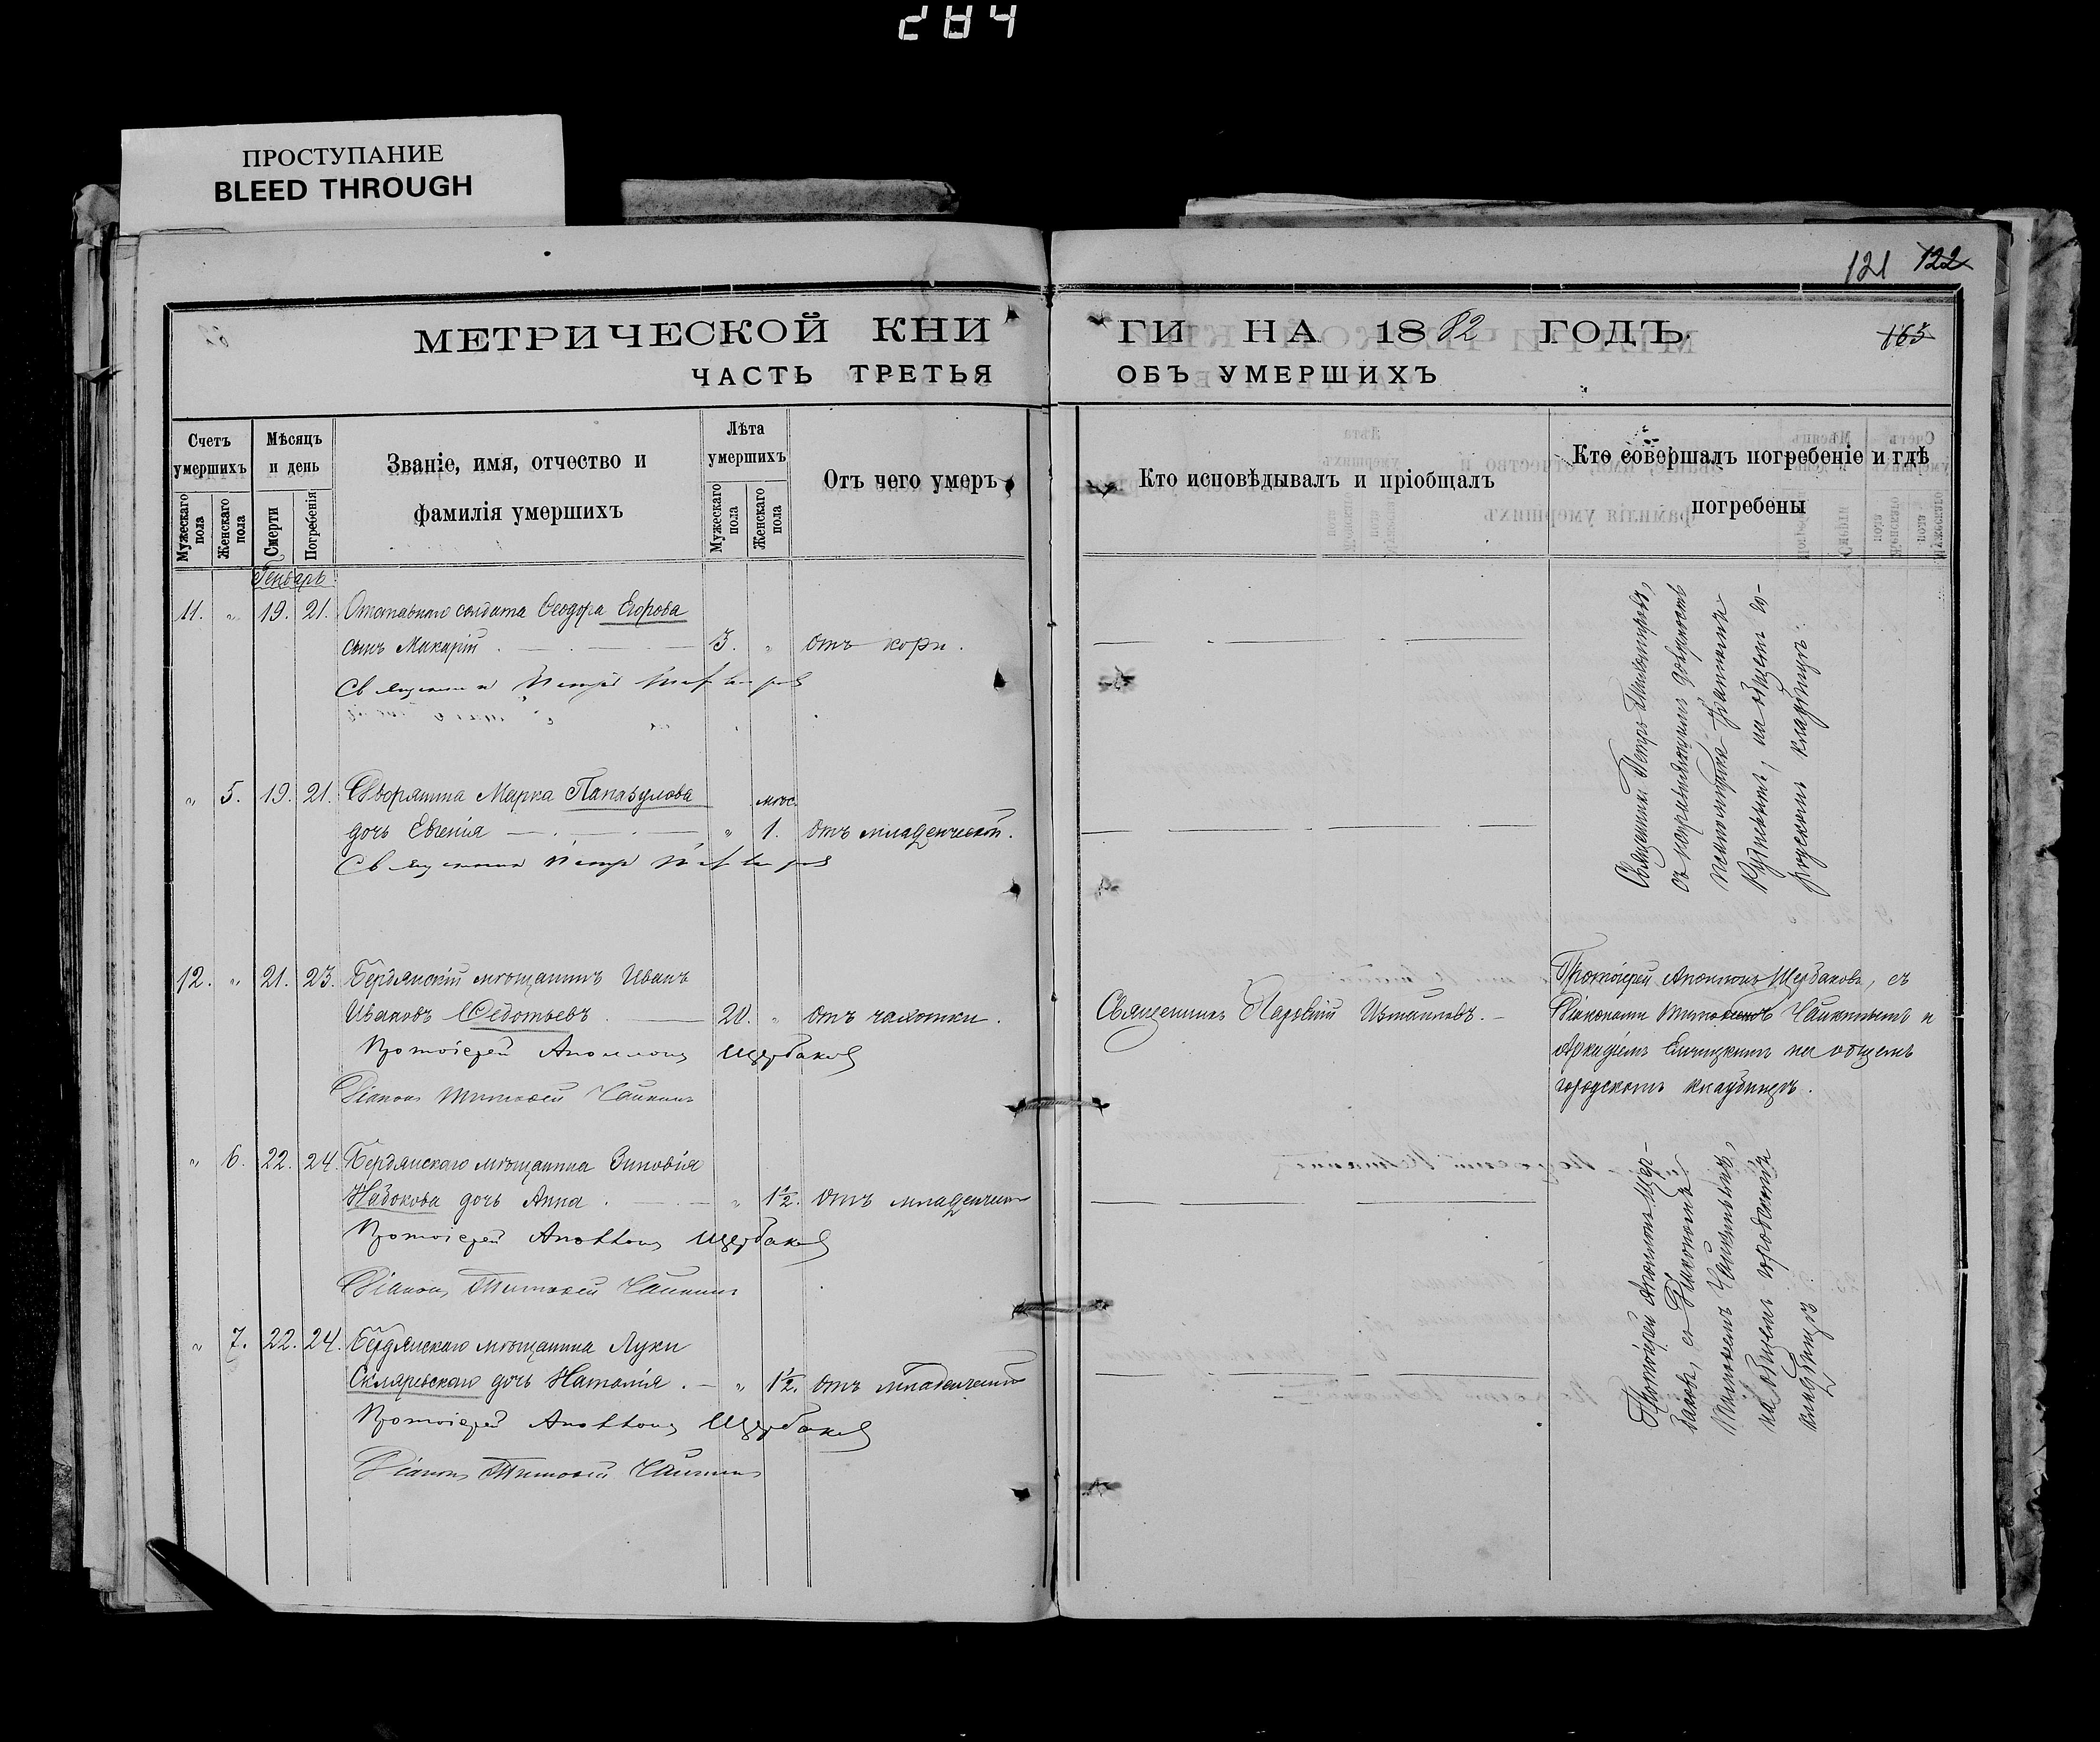 284
ПРОСТУПАНИЕ
BLEED THROUGH
121 122
МЕТРИЧЕСКОЙ КНИГИ НА 1882 ГОДЪ.
165
ЧАСТЬ ТРЕТЬЯ ОБЪ УМЕРШИХЪ
Счетъ умершихъ
Мужескаго пола
Женскаго пола
Мѣсяцъ и день
Смерти
Погребенія
Званіе, имя, отчество и
фамилія умершихъ
Лѣта умершихъ
Мужескаго пола
Женскаго пола
Отъ чего умеръ
Кто исповѣдывалъ и пріобщалъ
Кто совершалъ погребеніе и гдѣ
погребены
Генварь
11. " 19. 21. Отставнаго солдата Ѳеодора Егорова
сынъ Макарій 3. " отъ кори.
Священникъ Петръ
Священникъ Петръ
съ
на общемъ го-
родскомъ кладбищѣ.
" 5. 19. 21. Дворянина Марка Папазулова мѣс.
дочь Евгенія " 1. отъ младенческой.
Священникъ Петръ
12. " 21. 23. Бердянскій мѣщанинъ Иванъ
Ивановъ Ѳедотьевъ 20. " отъ чахотки.
Протоіерей Аполлонъ Щербаковъ
Діаконъ Тимоѳей Чайкинъ
Священникъ
Протоіерей Аполлонъ Щербаковъ, съ
Діаконами Тимоѳеемъ Чайкинымъ и
Аркадіемъ на общемъ
городскомъ кладбищѣ.
" 6. 22. 24. Бердянскаго мѣщанина Зиновія
Набокова дочь Анна " 1½. отъ младенческ
Протоіерей Аполлонъ Щербаковъ
Діаконъ Тимоѳей Чайкинъ
Протоіерей Аполлонъ Щер-
баковъ, съ Діакономъ
Тимоѳеемъ Чайкинымъ,
на общемъ городскомъ
кладбищѣ.
" 7. 22. 24. Бердянскаго мѣщанина Луки
Скляревскаго дочь Наталія. " 1½. отъ младенческ
Протоіерей Аполлонъ Щербаковъ
Діаконъ Тимоѳей Чайкинъ